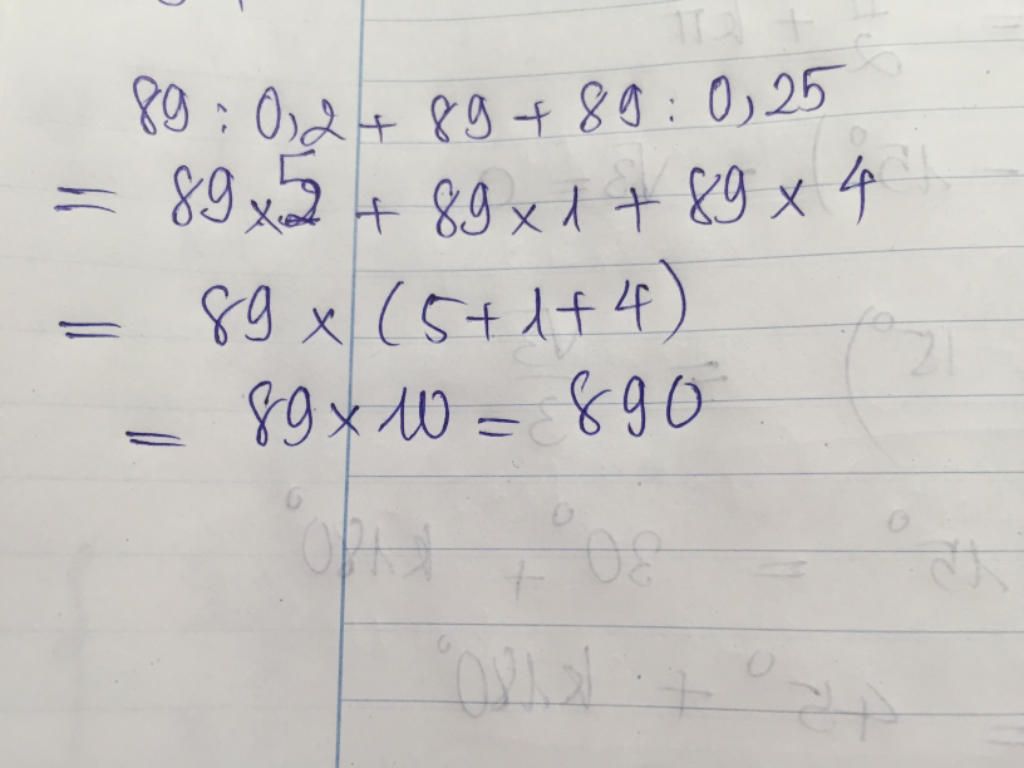 89 : 0,2 + 89 + 89 : 0,25
= 89 x 5 + 89 x 1 + 89 x 4
= 89 x (5+1+4)
= 89 x 10 = 890